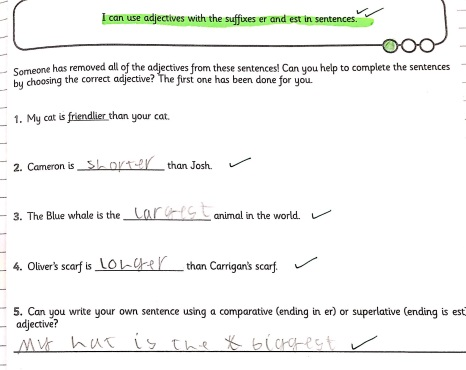 I can use adjectives with the suffixes er and est in sentences.
Someone has removed all of the adjectives from these sentences! Can you help to complete the sentences
by choosing the correct adjective? The first one has been done for you.
1. My cat is friendlier than your cat.
2. Cameron is shorter than Josh.
3. The Blue whale is the largest animal in the world.
4. Oliver's scarf is longer than Carrigan's scarf.
5. Can you write your own sentence using a comparative (ending in er) or superlative (ending is est)
adjective?
My hat is the biggest